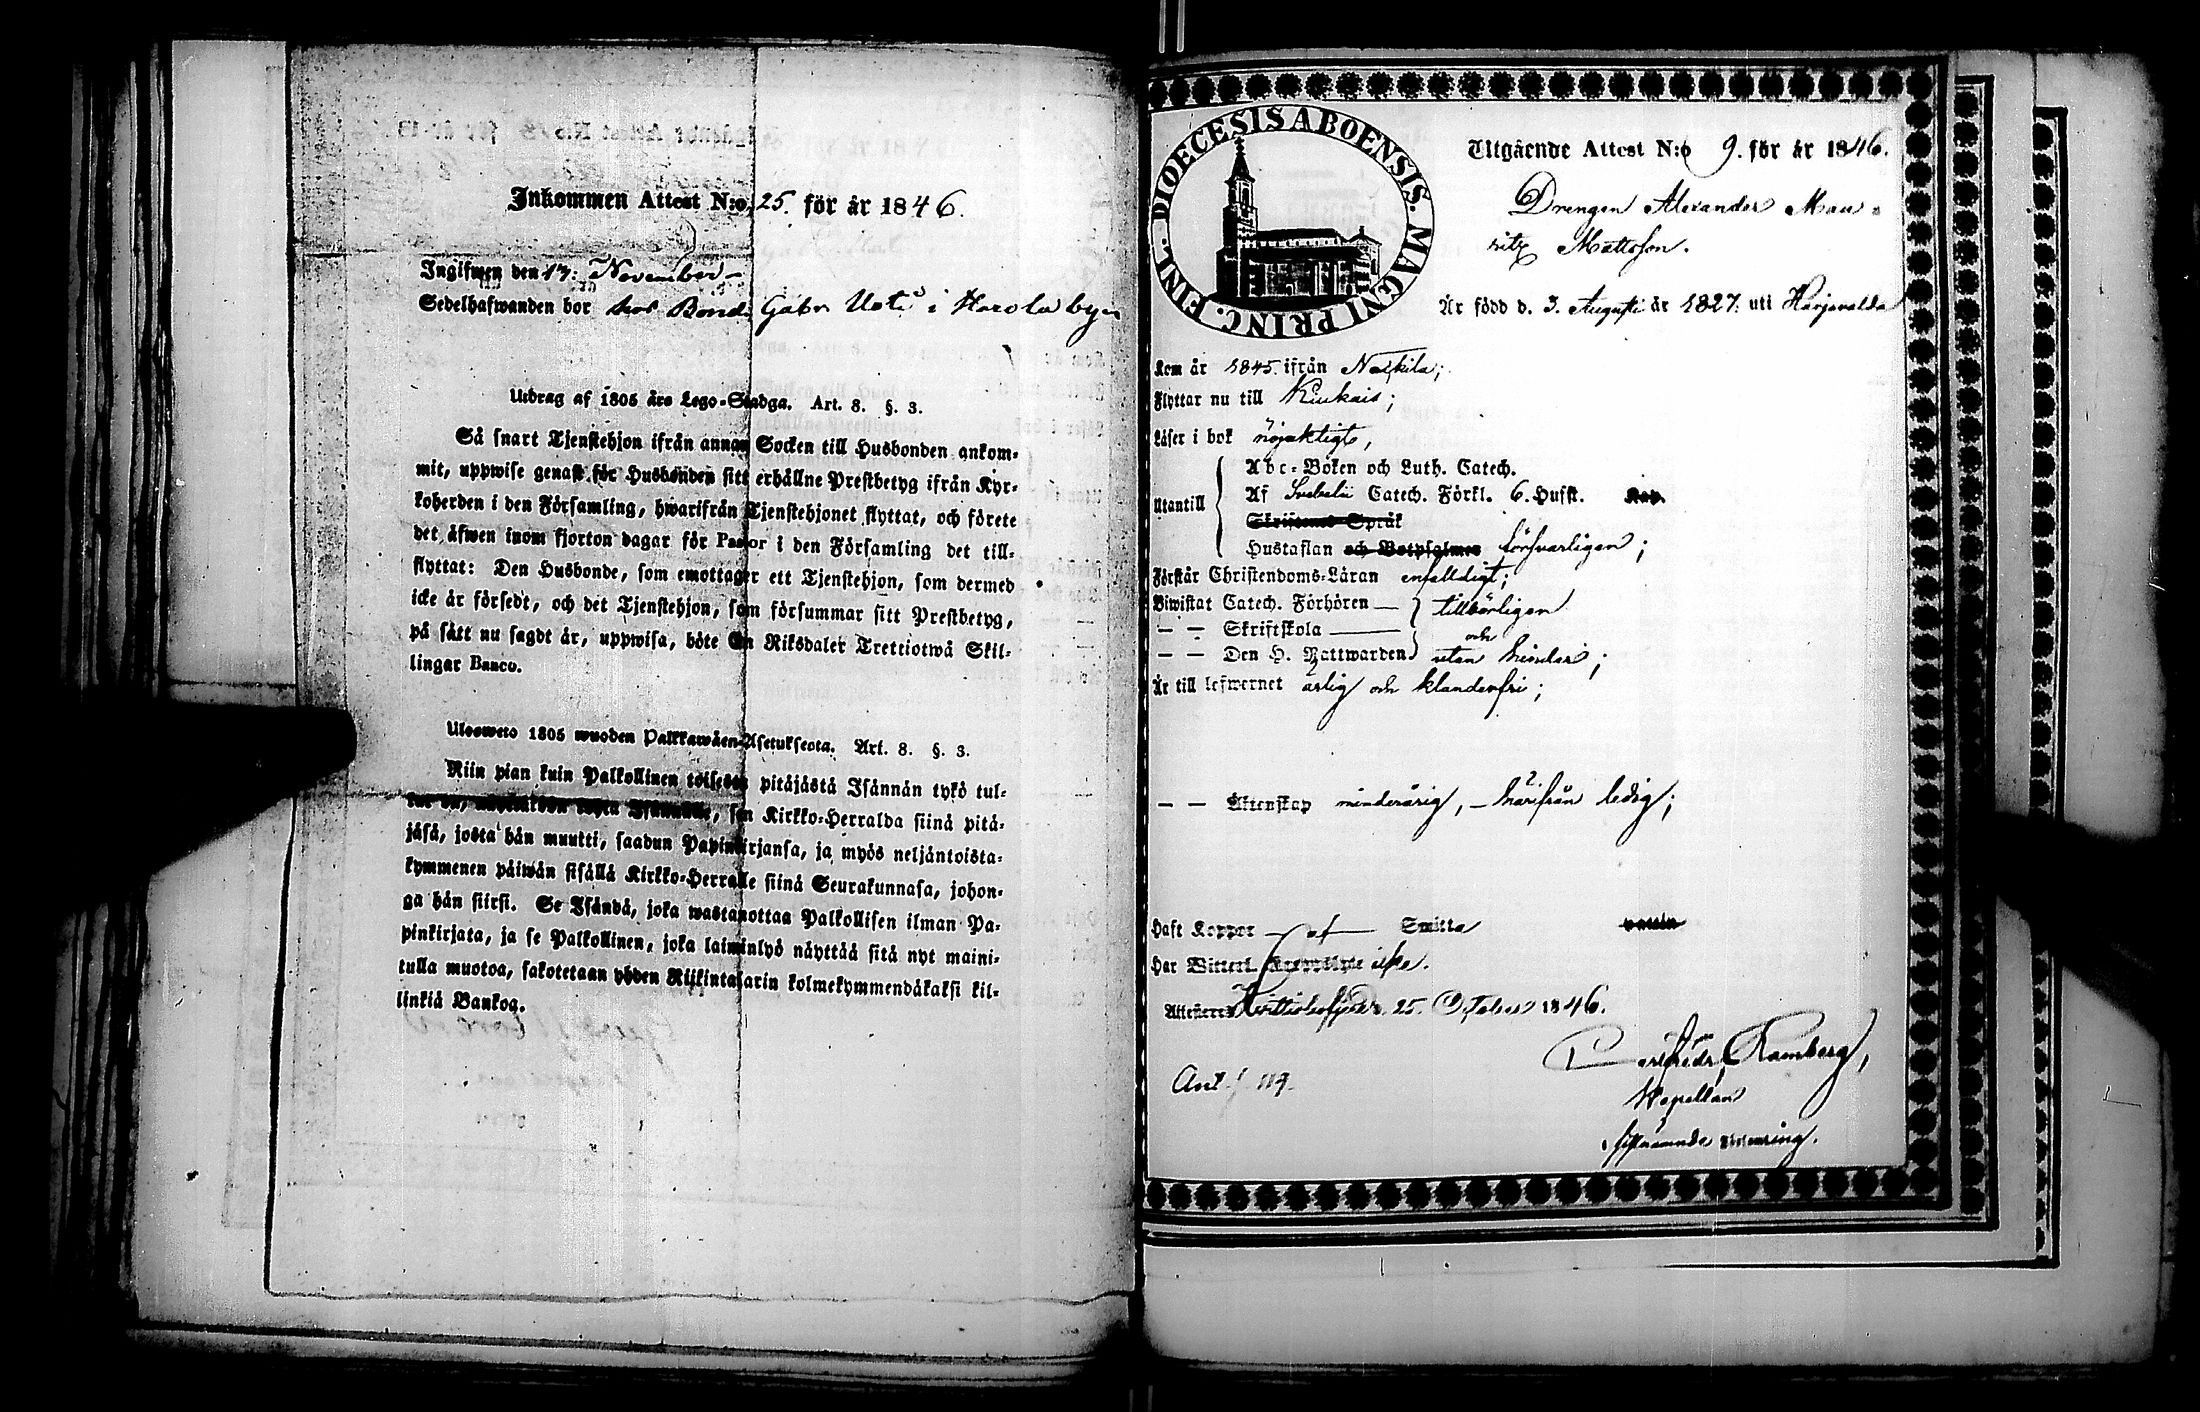 Inkommen Attest N:o 25. för år 1846.
Ingifwen den 17: November
Sedelhafwanden bor hos Bond. Gabr i Harola by
Utdrag af 1805 års Lego-Stadga. Art. 8. §. 3.
Så snart Tjenstehjon ifrån annan Socken till Husbonden ankom-
mit, uppwise genast för Husbonden sitt erhållne Prestbetyg ifrån Kyr-
koherden i den Församling, hwarifrån Tjenstehjonet flyttat, och förete
det äfwen inom fjorton dagar för Pastor i den Församling det till-
flyttat: Den Husbonde, som emottager ett Tjenstehjon, som dermed
icke är försedt, och det Tjenstehjon, som försummar sitt Prestbetyg,
på sätt nu sagdt är, uppwisa, böte En Riksdaler Trettiotwå Skil-
lingar Banco.
Ulosweto 1805 wuoden Palkkawäen-Asetuksesta. Art. 8. §. 3.
Niin pian kuin Palkollinen toisesta pitäjästä Isännän tykö tul-
lut on, Isännälle, sen Kirkko-Herralda siinä pitä-
jäsä, josta hän muutti, saadun Papinkirjansa, ja myös neljäntoista-
kymmenen päiwän sisällä Kirkko-Herralle siinä Seurakunnasa, johon-
ga hän siirsi. Se Isändä, joka wastanottaa Palkollisen ilman Pa-
pinkirjata, ja se Palkollinen, joka laiminlyö näyttää sitä nyt maini-
tulla muotoa, sakotetaan yhden Riikintalarin kolmekymmendäkaksi kil-
linkiä Bankog.
DIOECESIS ABOENSIS. MAGNI PRINC. FINL.
Utgående Attest N:o 9. för år 1846.
Drengen Alexander Mau-
ritz Mattsson.
Är född d. 3. Augusti år 1827. uti Harjavalda
Kom år 1845. ifrån Nakkila;
Flyttar nu till Kiukais;
Läser i bok nöjaktigt,
Abc-Boken och Luth. Catech.
Utantill Af Svebelii Catech. Förkl. 6. Hufst. Kap.
Skriftenes Språk
Hustaflan och Botpsalmer försvarligen;
Förstår Christendoms-Läran enfalldigt;
Biwistat Catech. Förhören — tillbörligen
— — Skriftskola — och
— — Den H. Nattwarden utan hinder;
Är till lefwernet ärlig och klanderfri;
— — Äktenskap minderårig, — härifrån ledig;
Haft Koppor — af — Smitta vaccin
Har Witterl. icke.
Attesterar d. 25. October 1846.
Ramberg,
Kapellan